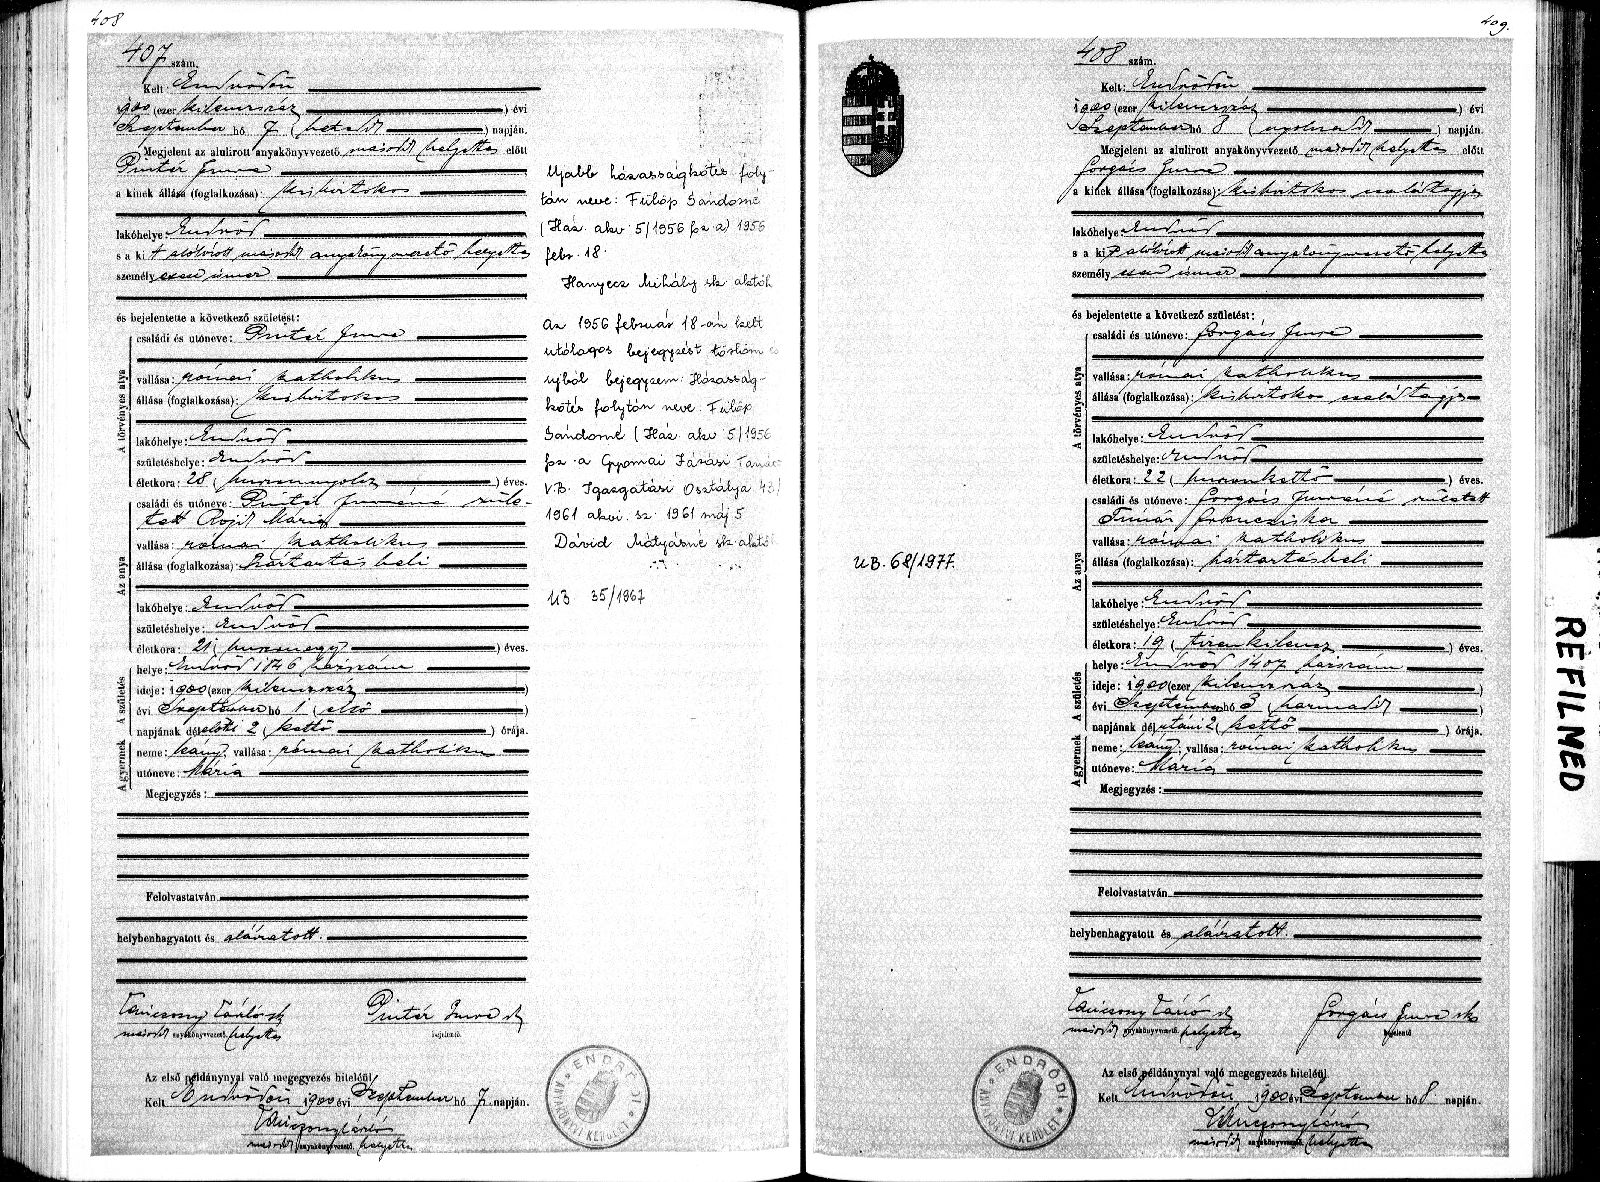 408
407 szám.
Kelt Endrődön
1900 (ezer kilenczszáz) évi
Szeptember hó 7 (hetedik) napján.
Megjelent az alulirott anyakönyvvezető másodh helyettes előtt
Pintér Imre
a kinek állása (foglalkozása): kisbirtokos
lakóhelye: Endrőd
s a kit alólirott másodh anyakönyvvezető helyettes
személyesen ismer
és bejelentette a következő születést:
A törvényes atya
családi és utóneve: Pintér Imre
vallása: római katholikus
állása (foglalkozása): kisbirtokos
lakóhelye: Endrőd
születéshelye: Endrőd
életkora: 28 (huszonnyolcz) éves.
Az anya
családi és utóneve: Pintér Imréné szüle-
tett Rojik Mária
vallása: római katholikus
állása (foglalkozása): háztartásbeli
lakóhelye: Endrőd
születéshelye: Endrőd
életkora: 21 (huszonegy) éves.
A születés
helye: Endrőd 1846 házszám
ideje: 1900 (ezer kilenczszáz)
évi Szeptember hó 1 (első)
napjának délelőtti 2 (kettő) órája.
A gyermek
neme: leány; vallása: római katholikus
utóneve: Mária
Megjegyzés:
Felolvastatván
helybenhagyatott és aláiratott.
Pintér Imre sk
másodh anyakönyvvezető helyettes bejelentő.
Az első példánynyal való megegyezés hiteléül
Kelt Endrődön 1900 évi Szeptember hó 7 napján.
másodh anyakönyvvezető helyettes
ENDRŐDI
ANYAKÖNYVI KERÜLET
Ujabb házasságkötés foly-
tán neve: Fülöp Sándorné
(Ház. akv. 5/1956 fsz. a) 1956
febr. 18.
Hanyecz Mihály sk aktóh
Az 1956 február 18-án kelt
utólagos bejegyzést törlöm és
ujból bejegyzem: Házasság-
kötés folytán neve: Fülöp
Sándorné (Ház. akv 5/1956
fsz. a Gyomai Járási Tanács
V.B. Igazgatási Osztálya 43/
1961 akvi. sz. 1961 máj 5
Dávid Mátyásné sk aktóh
UB 35/1967
409.
408 szám.
Kelt: Endrődön
1900 (ezer kilenczszáz) évi
Szeptember hó 8 (nyolczadik) napján.
Megjelent az alulirott anyakönyvvezető másodh helyettes előtt
Forgács Imre
a kinek állása (foglalkozása): kisbirtokos családtagja
lakóhelye: Endrőd
s a kit alólirott másodh anyakönyvvezető helyettes
személyesen ismer
és bejelentette a következő születést:
A törvényes atya
családi és utóneve: Forgács Imre
vallása: római katholikus
állása (foglalkozása): kisbirtokos családtagja
lakóhelye: Endrőd
születéshelye: Endrőd
életkora: 22 (huszonkettő) éves.
Az anya
családi és utóneve: Forgács Imréné született
Tímár Francziska
vallása: római katholikus
állása (foglalkozása): háztartásbeli
lakóhelye: Endrőd
születéshelye: Endrőd
életkora: 19 (tizenkilencz) éves.
A születés
helye: Endrőd 1407 házszám
ideje: 1900 (ezer kilenczszáz)
évi Szeptember hó 3 (harmadik)
napjának délutáni 2 (kettő) órája.
A gyermek
neme: leány; vallása: római katholikus
utóneve: Mária
Megjegyzés:
Felolvastatván
helybenhagyatott és aláiratott.
Forgács Imre sk
másodh anyakönyvvezető helyettes bejelentő
Az első példánynyal való megegyezés hiteléül
Kelt Endrődön 1900 évi Szeptember hó 8 napján.
másodh anyakönyvvezető helyettes
ENDRŐDI
ANYAKÖNYVI KERÜLET
UB. 68/1977.
REFILMED